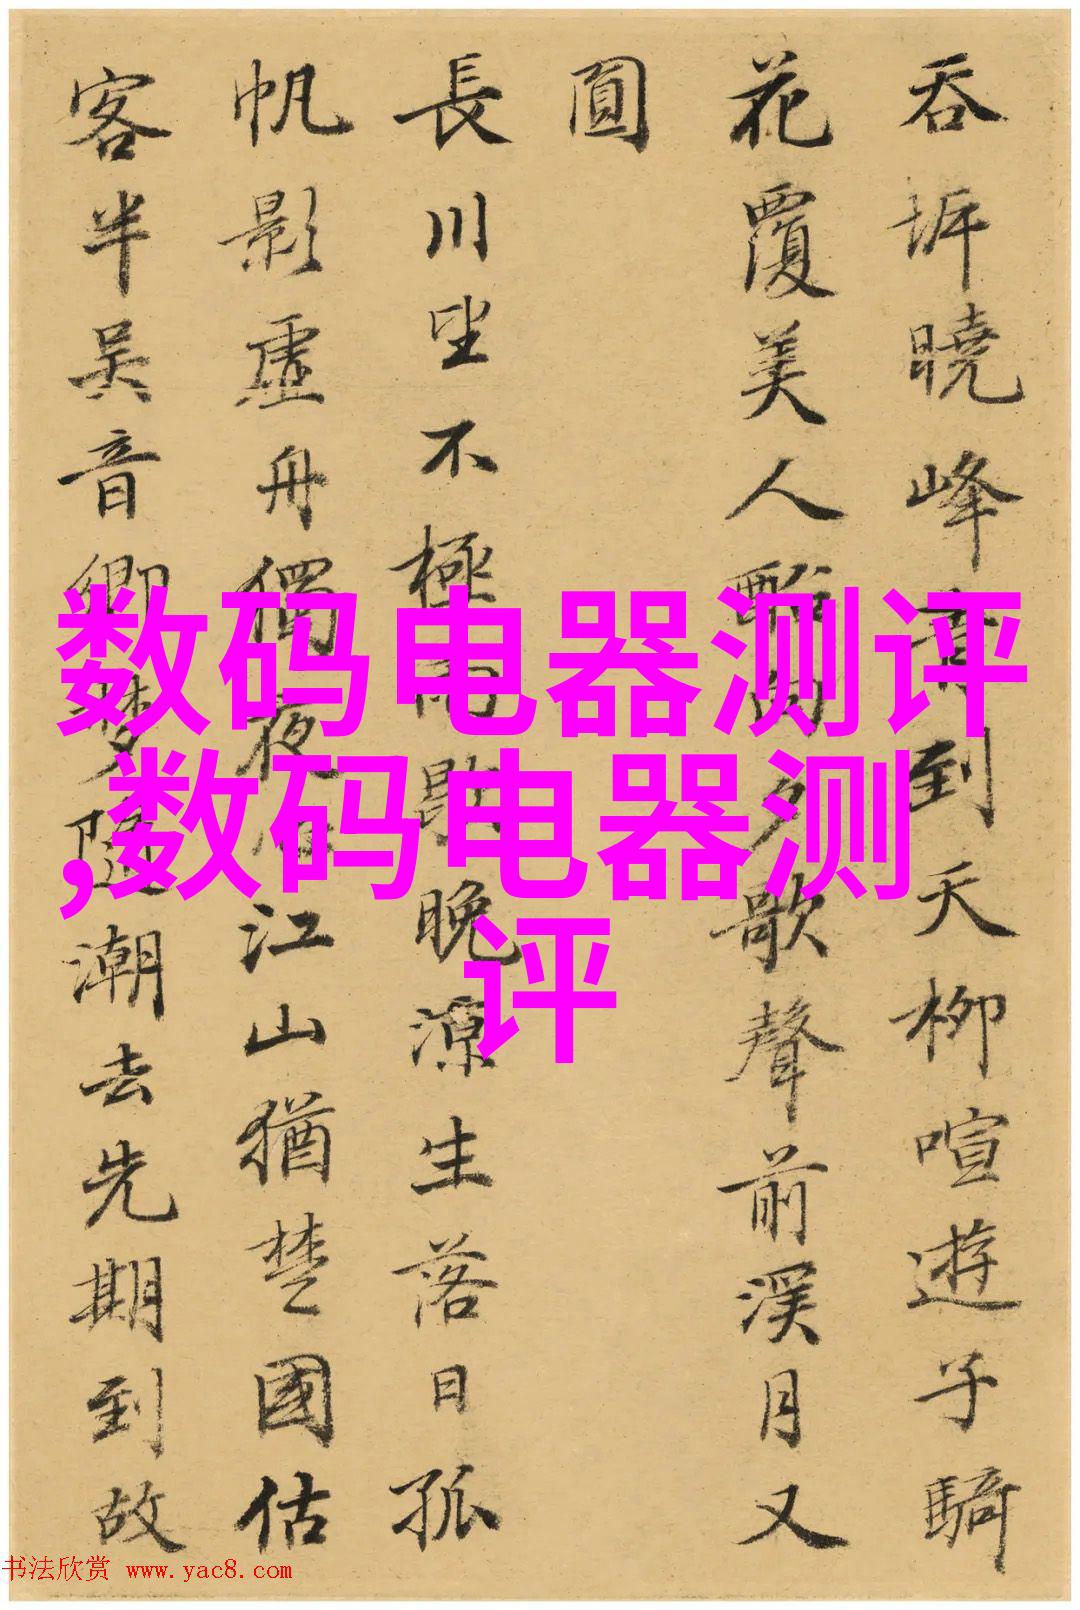 吞坼曉峰青到天柳喧遊子騎
花覆美人向夕歌聲前溪月又
圓
長川坐不極雨歇晚涼生落日孤
帆影虛舟獨夜江山猶楚國估
客半吳音鄉夢隨潮去先期到故
数码电器测评
,数码电器测
评
书法欣赏 www.yac8.com